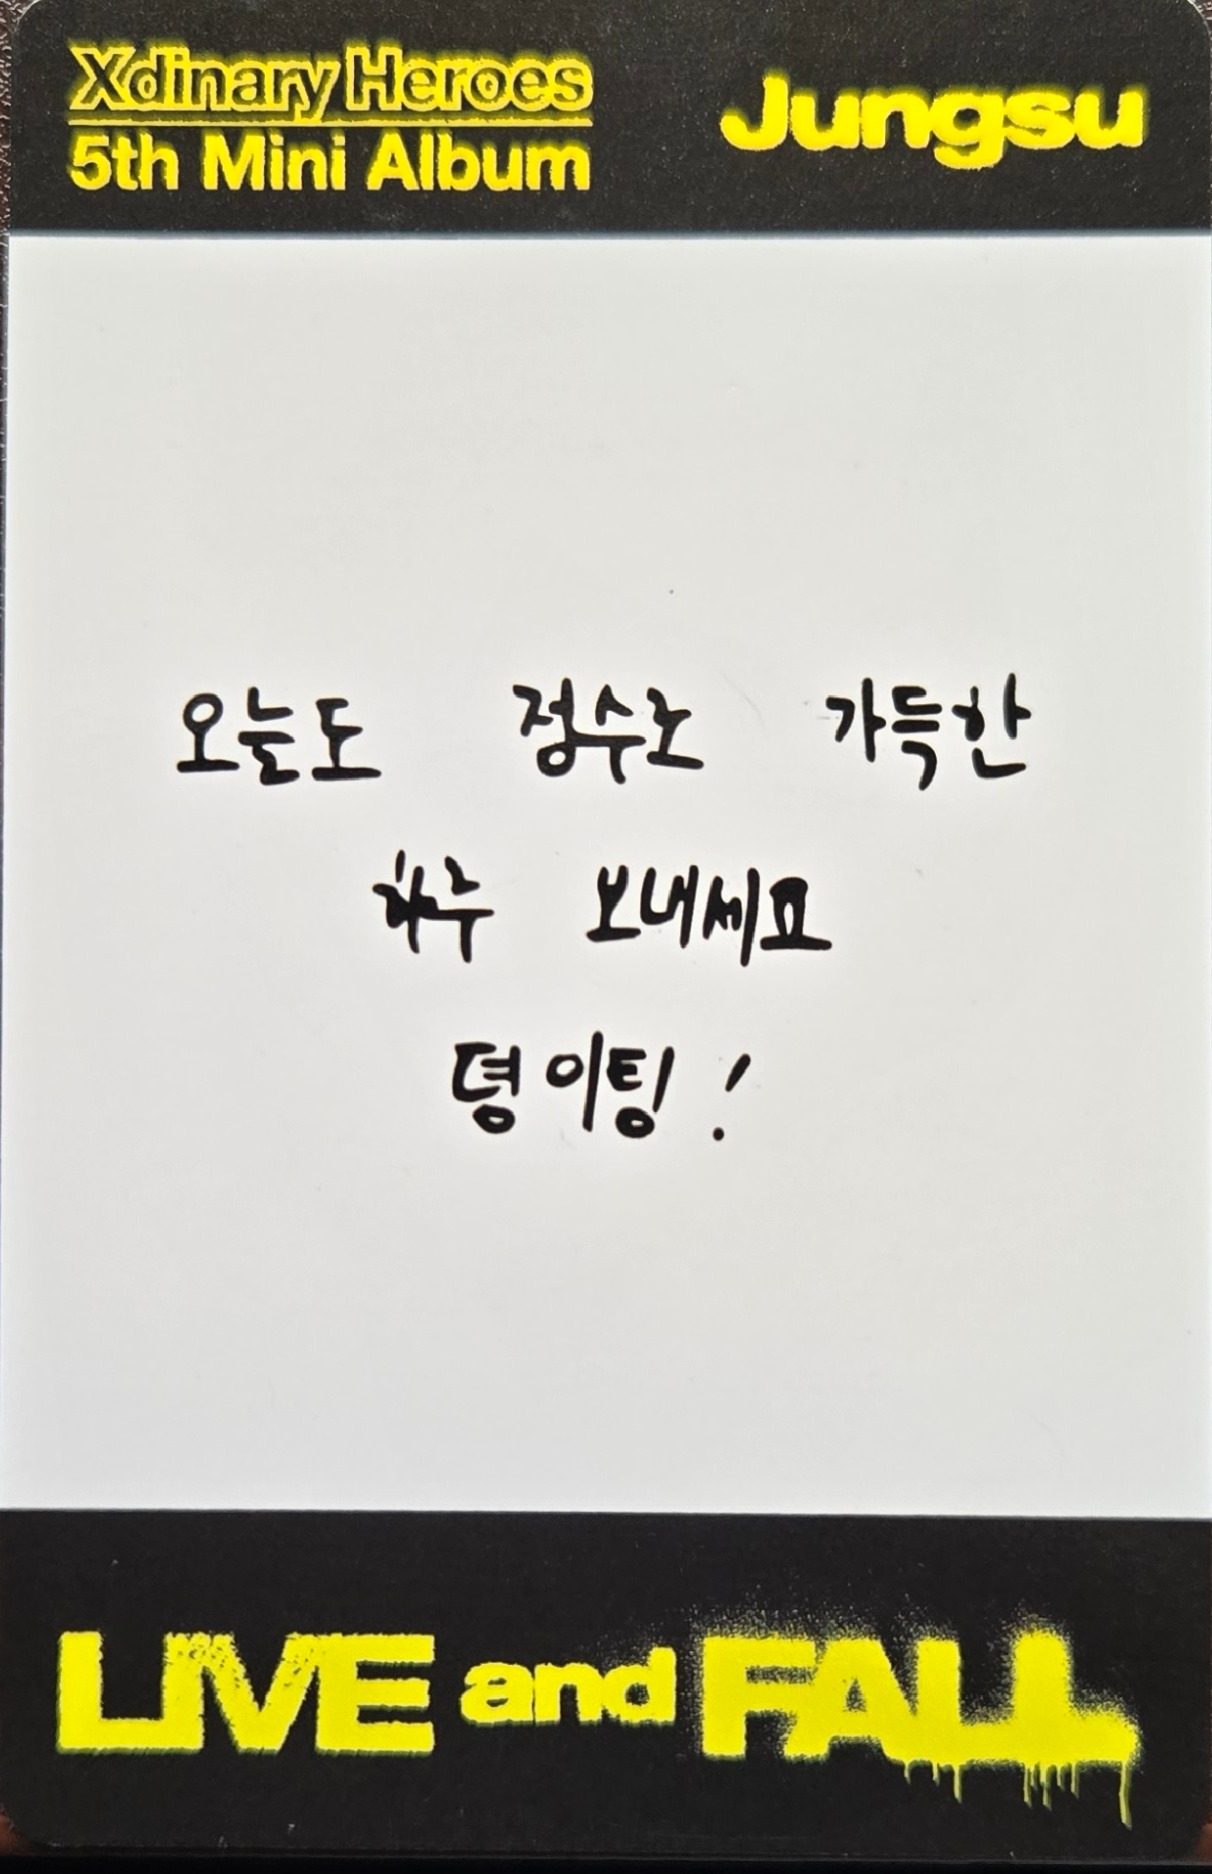 Xdinary Heroes
5th Mini Album
Jungsu
오늘도 정수로 가득한
하루 보내세요
뎡이팅!
LIVE and FALL